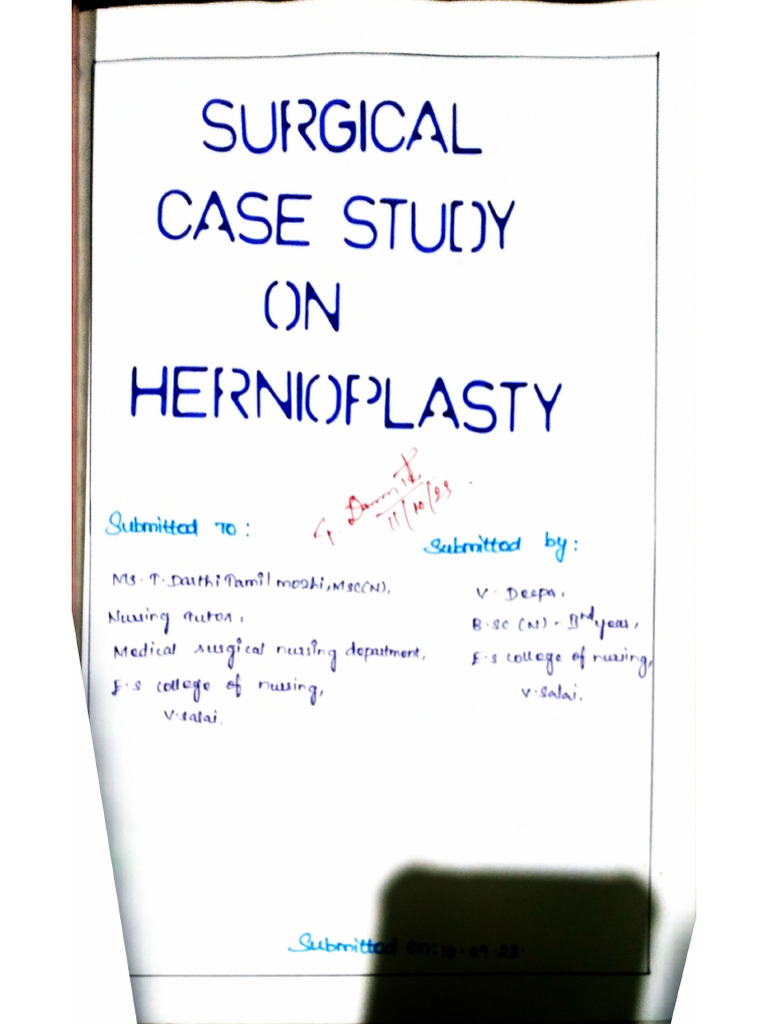 SURGICAL
CASE STUDY
ON
HERNIOPLASTY
11/10/23
Submitted To:
Ms. T. Tamil mozhi, MSC(N),
Nursing tutor,
Medical surgical nursing department,
E.S college of nursing,
V.Salai.
Submitted by:
V. Deepa,
B.SC (N) - year,
E.S college of nursing,
V.Salai.
Submitted on: .09.23